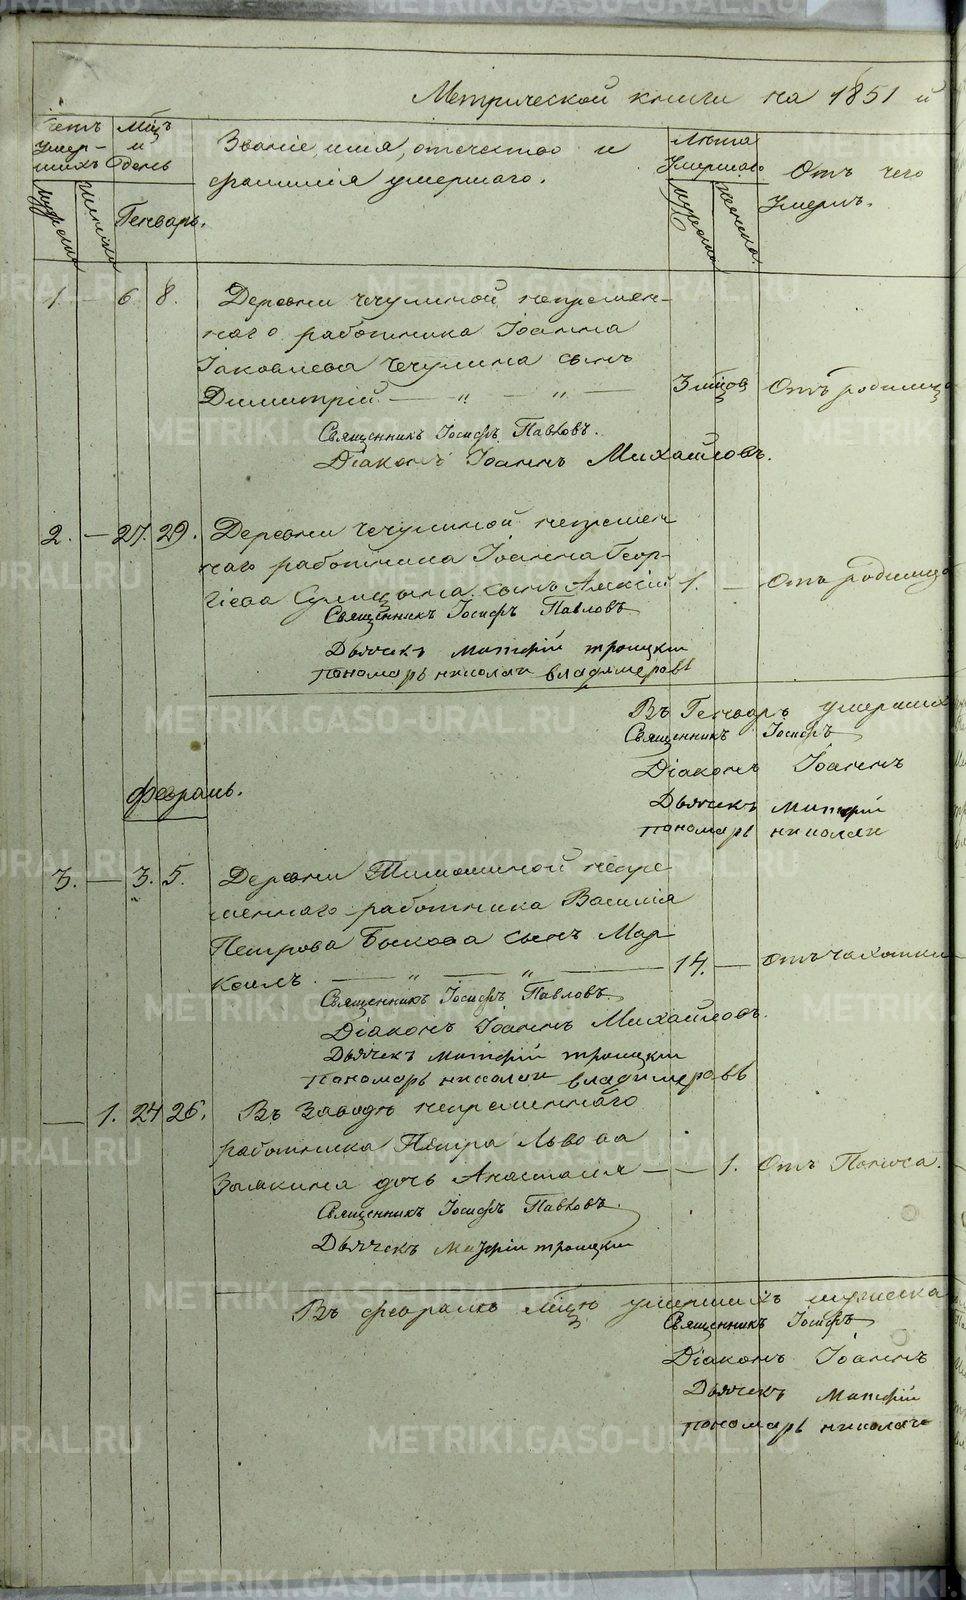 Метрической книги на 1851 й
Счетъ умер-шихъ
Мцъ и день
Званіе, имя, отечество и
фамилія умершаго.
Лѣта Умершаго
Отъ чего
Умеръ.
мужеска
женска
Генварь.
мужеска
женска.
1. — 6. 8. Деревни Чечулиной непремен-
наго работника Іоанна
Іаковлева Чечулина сынъ
Димитрій — „ — „ — 3 мцов Отъ родимца
Священникъ Іосифъ Павловъ.
Діаконъ Іоаннъ Михайловъ.
2. — 27. 29. Деревни Чечулиной непремен
наго работника Іоанна Геор-
гіева сынъ Алексій 1. — Отъ родимца
Священникъ Іосифъ Павловъ
Дьячекъ Матфій Троицкіи
пономарь николаи владимеровъ
Въ Генварѣ умершихъ
Священникъ Іосифъ
Діаконъ Іоаннъ
Февраль.
Дьячекъ Матфій
пономарь николаи
3. — 3. 5. Деревни Тимошиной непре
меннаго работника Василія
Петрова Быкова сынъ Мар
кеилъ. — „ — „ — 14. — отъ чахотки
Священникъ Іосифъ Павловъ
Діаконъ Іоаннъ Михайловъ.
Дьячекъ Матфій Троицкіи
пономарь николаи владимеровъ
— 1. 24 26. Въ Заводѣ непременнаго
работника Петра Львова
Зыкина дочь Анастасія — — 1. Отъ Поноса.
Священникъ Іосифъ Павловъ.
Дьячекъ Матфіи троицкіи
Въ февралѣ мцѣ умершихъ мужеска
Священникъ Іосифъ
Діаконъ Іоаннъ
Дьячекъ Матфій
пономарь николаи
METRIKI.GASO-URAL.RU